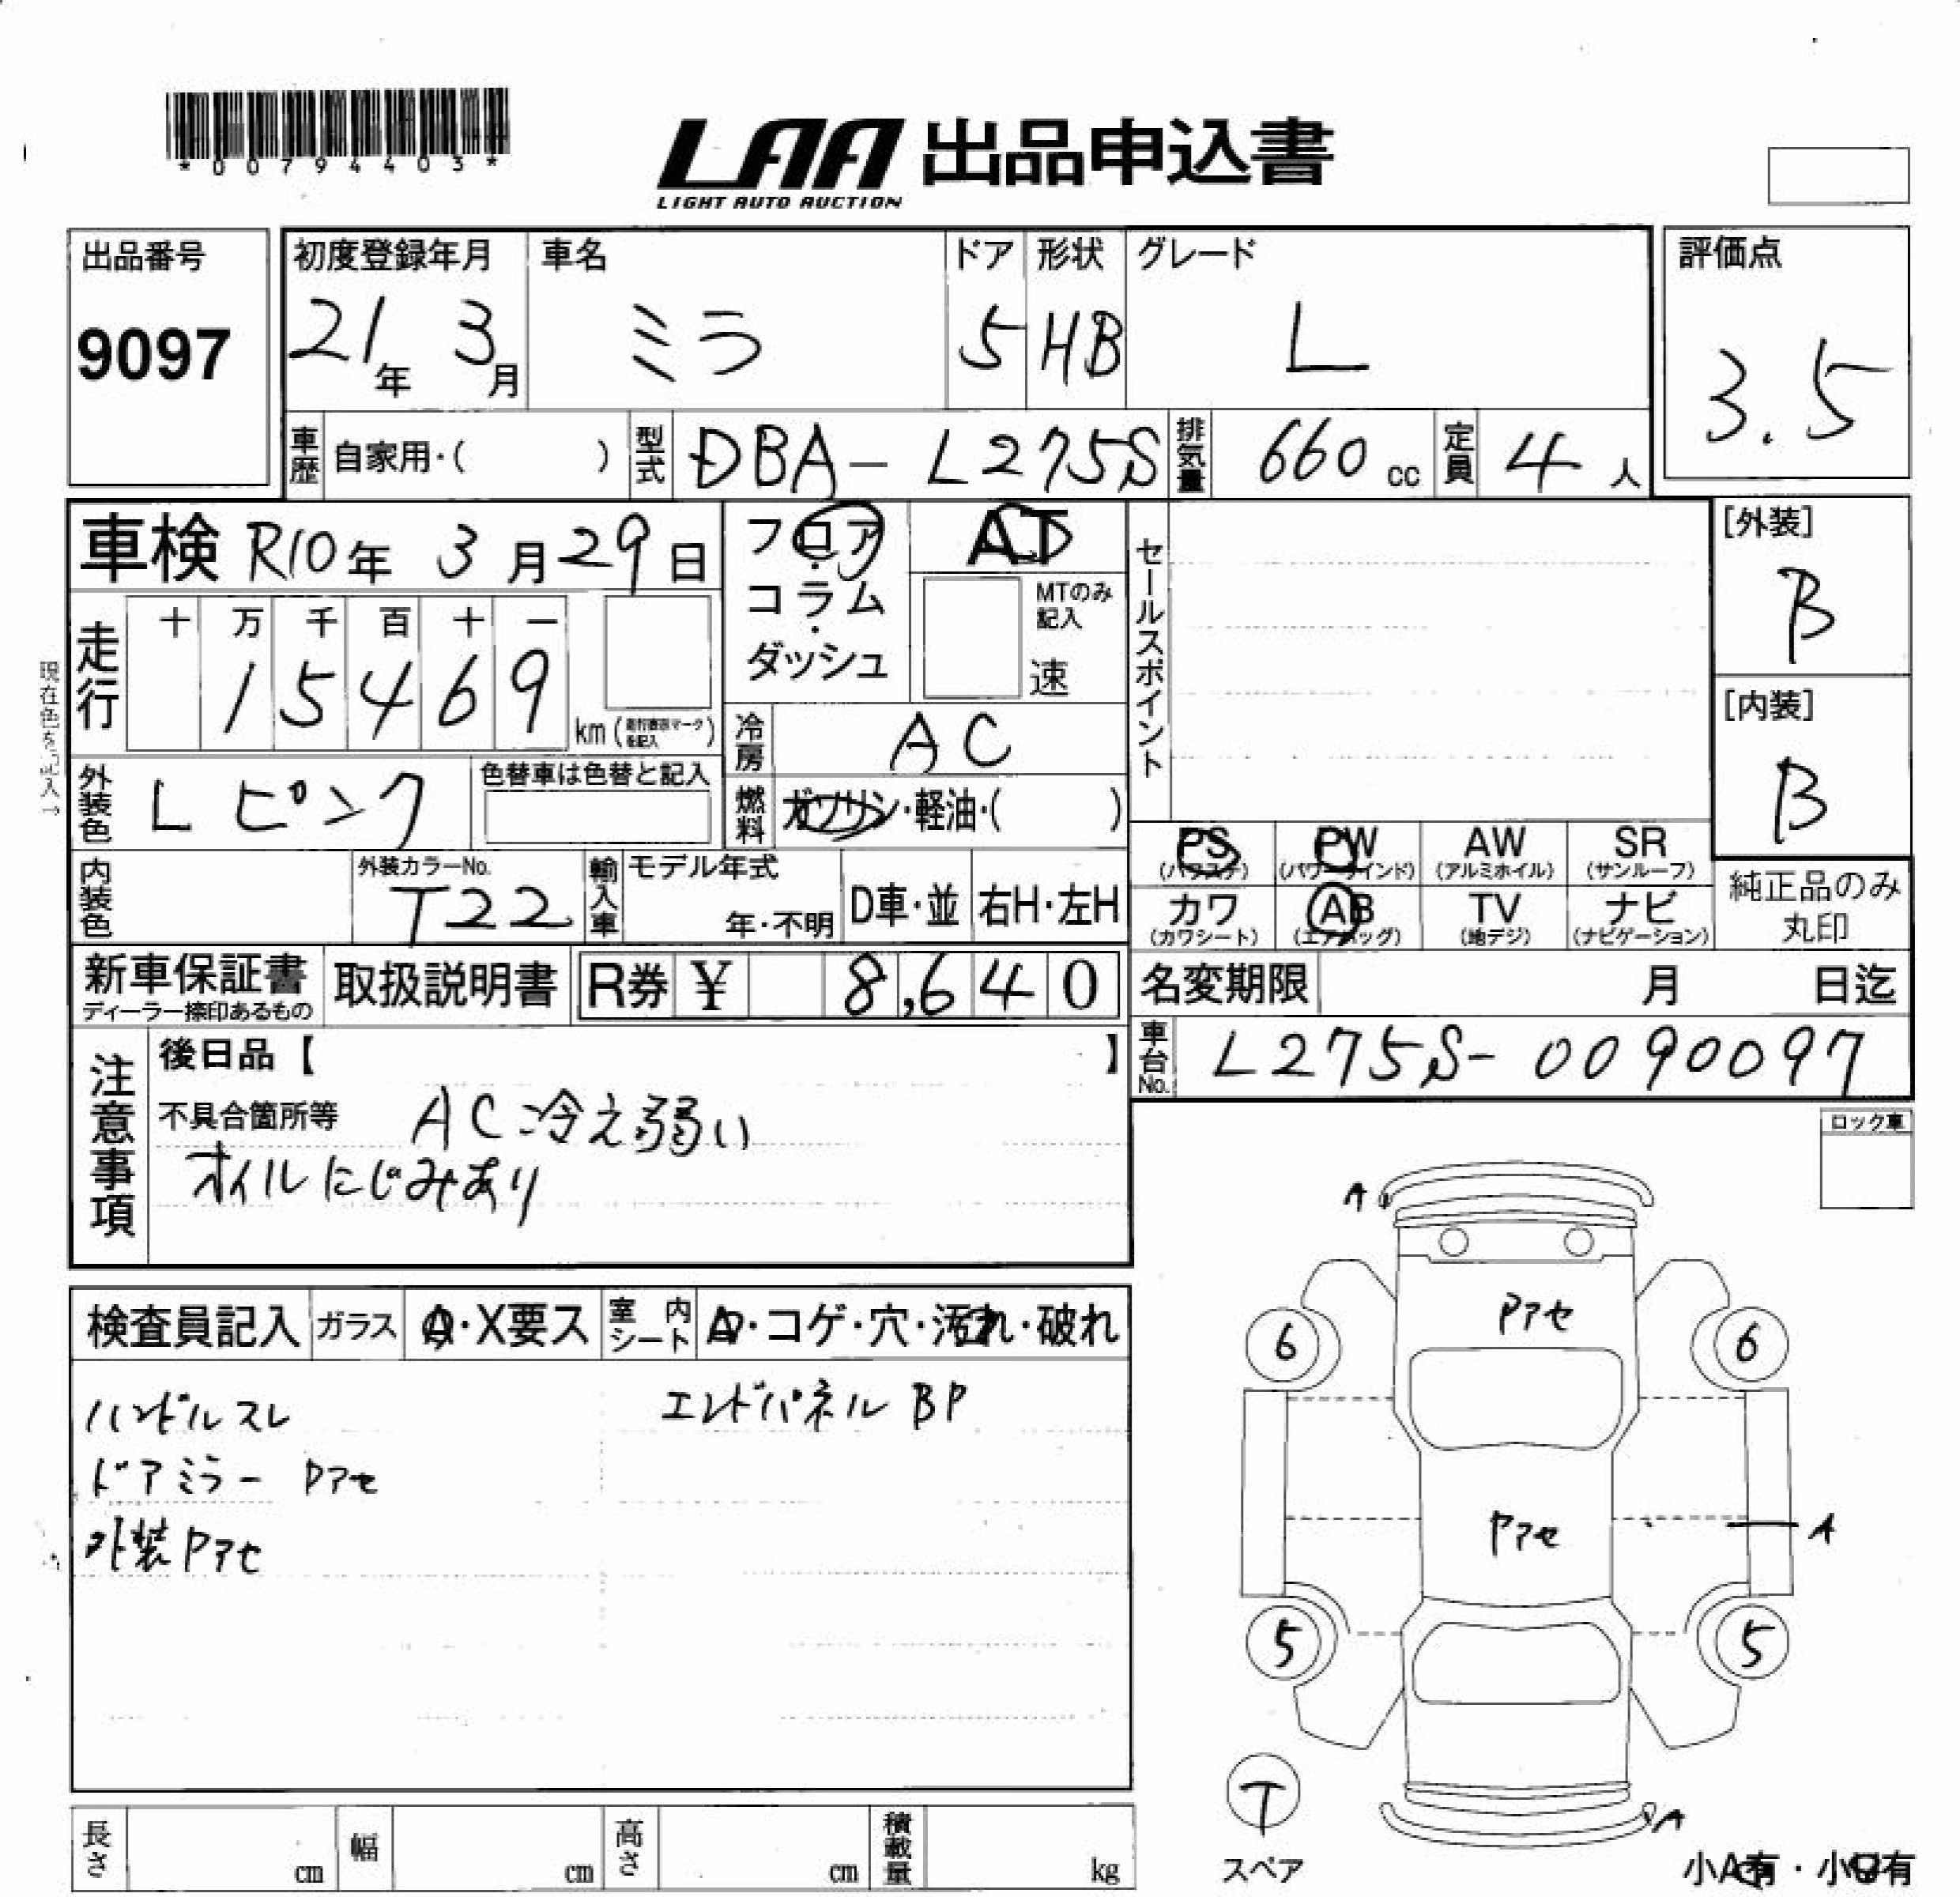 *00794403*
LAA 出品申込書
LIGHT AUTO AUCTION
出品番号
9097
初度登録年月
21年 3月
車名
ミラ
ドア
5
形状
HB
グレード
L
評価点
3.5
車歴 自家用・( )
型式 DBA-L275S
排気量 660 cc
定員 4 人
車検 R10年 3月29日
フロア・コラム・ダッシュ
AT
MTのみ記入
速
セールスポイント
[外装]
B
[内装]
B
現在色を記入→
走行 十 万 千 百 十 一
15469
km (走行表示マークを記入)
冷房 AC
外装色 Lピンク
色替車は色替と記入
燃料 ガソリン・軽油・( )
PS (パワステ)
PW (パワーウインド)
AW (アルミホイル)
SR (サンルーフ)
内装色
外装カラーNo.
T22
輸入車
モデル年式
年・不明
D車・並
右H・左H
カワ (カワシート)
AB (エアバッグ)
TV (地デジ)
ナビ (ナビゲーション)
純正品のみ丸印
新車保証書
ディーラー捺印あるもの
取扱説明書
R券 ¥ 8,640
名変期限 月 日迄
車台No. L275S-0090097
注意事項
後日品【 】
不具合箇所等 AC冷え弱い
オイルにじみあり
ロック車
検査員記入
ガラス A・X要ス
室内シート A・コゲ・穴・汚れ・破れ
ハンドルスレ
エンドパネル BP
ドアミラー Pアセ
外装Pアセ
A
Pアセ
6
6
Pアセ
A
5
5
T
スペア
A
小A有・小B有
長さ cm
幅 cm
高さ cm
積載量 kg